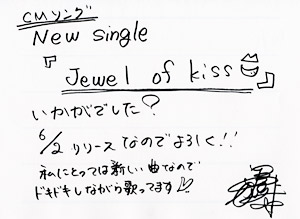 CMソング
New single
『Jewel of kiss』
いかがでした?
6/2 リリースなのでよろしく!!
私にとっては新しい曲なので
ドキドキしながら歌ってます